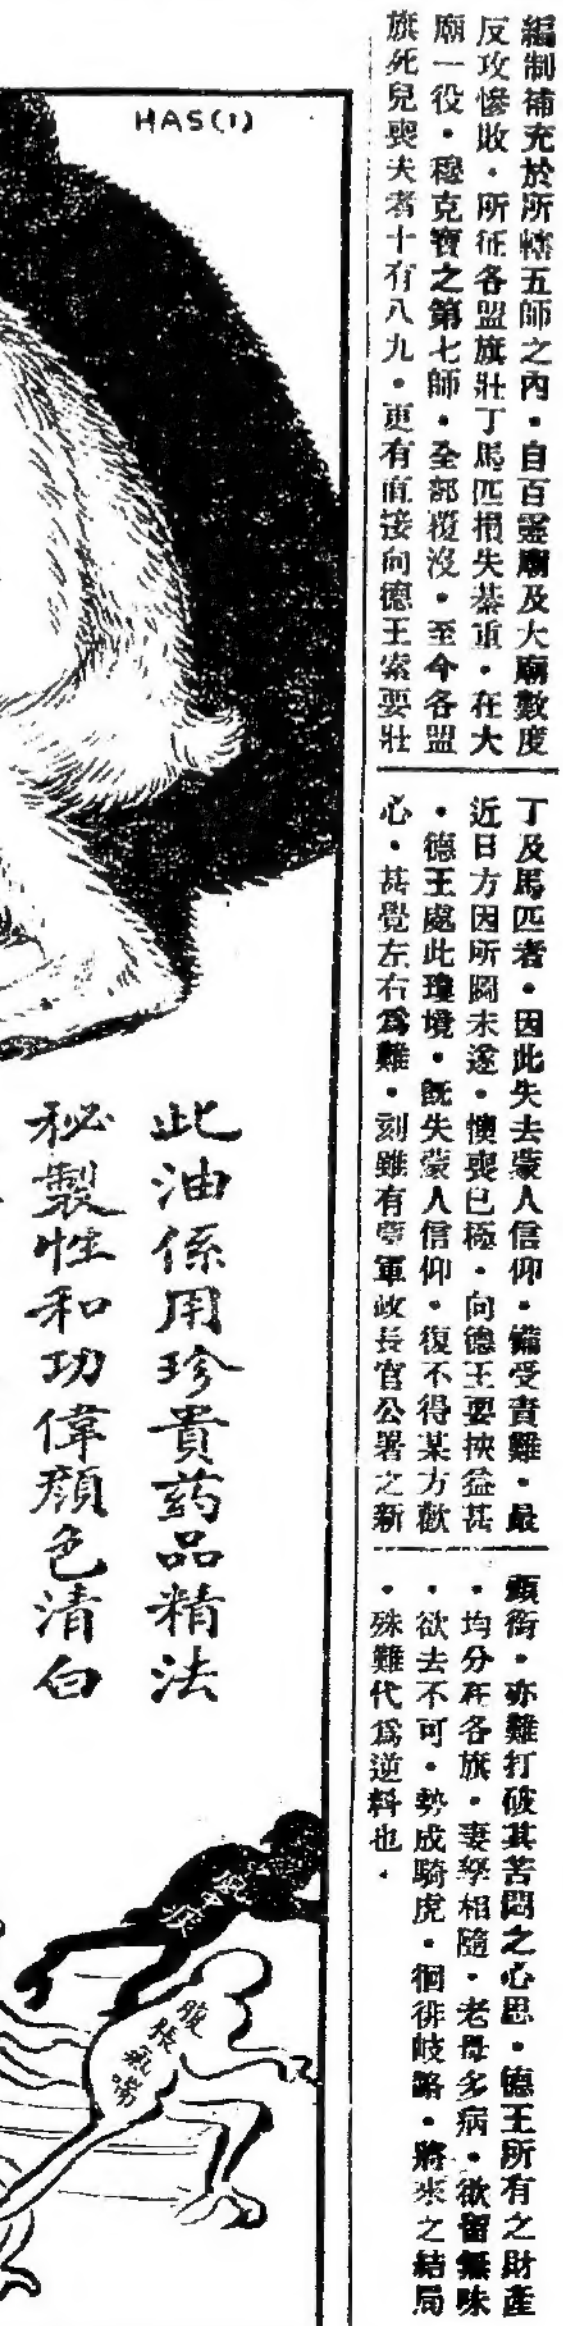 編制補充於所轄五師之內・自百靈廟及大廟數度
反攻慘敗・所征各盟旗壯丁馬匹損失綦重・在大
廟一役・穆克寶之第七師・全部覆沒・至今各盟
旗死兒喪夫者十有八九・更有直接向德王索要壯
丁及馬匹者・因此失去蒙人信仰・備受責難・最
近日方因所圖未遂・懊喪已極・向德王要挾益甚
・德王處此環境・既失蒙人信仰・復不得某方歡
心・甚覺左右為難・刻雖有蒙軍政長官公署之新
頭銜・亦難打破其苦悶之心思・德王所有之財產
・均分在各旗・妻孥相隨・老母多病・欲留無味
・欲去不可・勢成騎虎・徊徘岐路・將來之結局
・殊難代為逆料也・
HAS(1)
此油係用珍貴药品精法
秘製性和功偉顏色清白
咳
脹氣